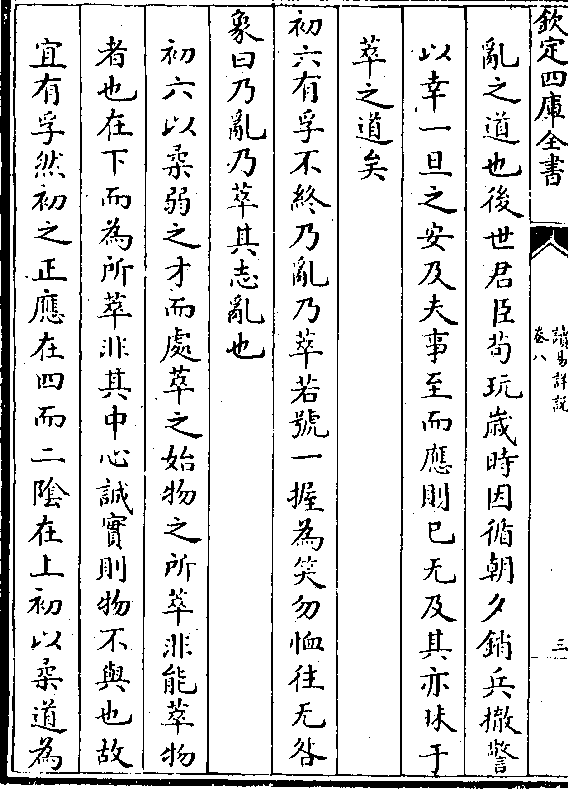 欽定四庫全書
讀易詳說
卷八
三
亂之道也後世君臣苟玩歲時因循朝夕銷兵撤警
以幸一旦之安及夫事至而應則已无及其亦昧于
萃之道矣
初六有孚不終乃亂乃萃若號一握為笑勿恤往无咎
象曰乃亂乃萃其志亂也
初六以柔弱之才而處萃之始物之所萃非能萃物
者也在下而為所萃非其中心誠實則物不與也故
宜有孚然初之正應在四而二陰在上初以柔道為